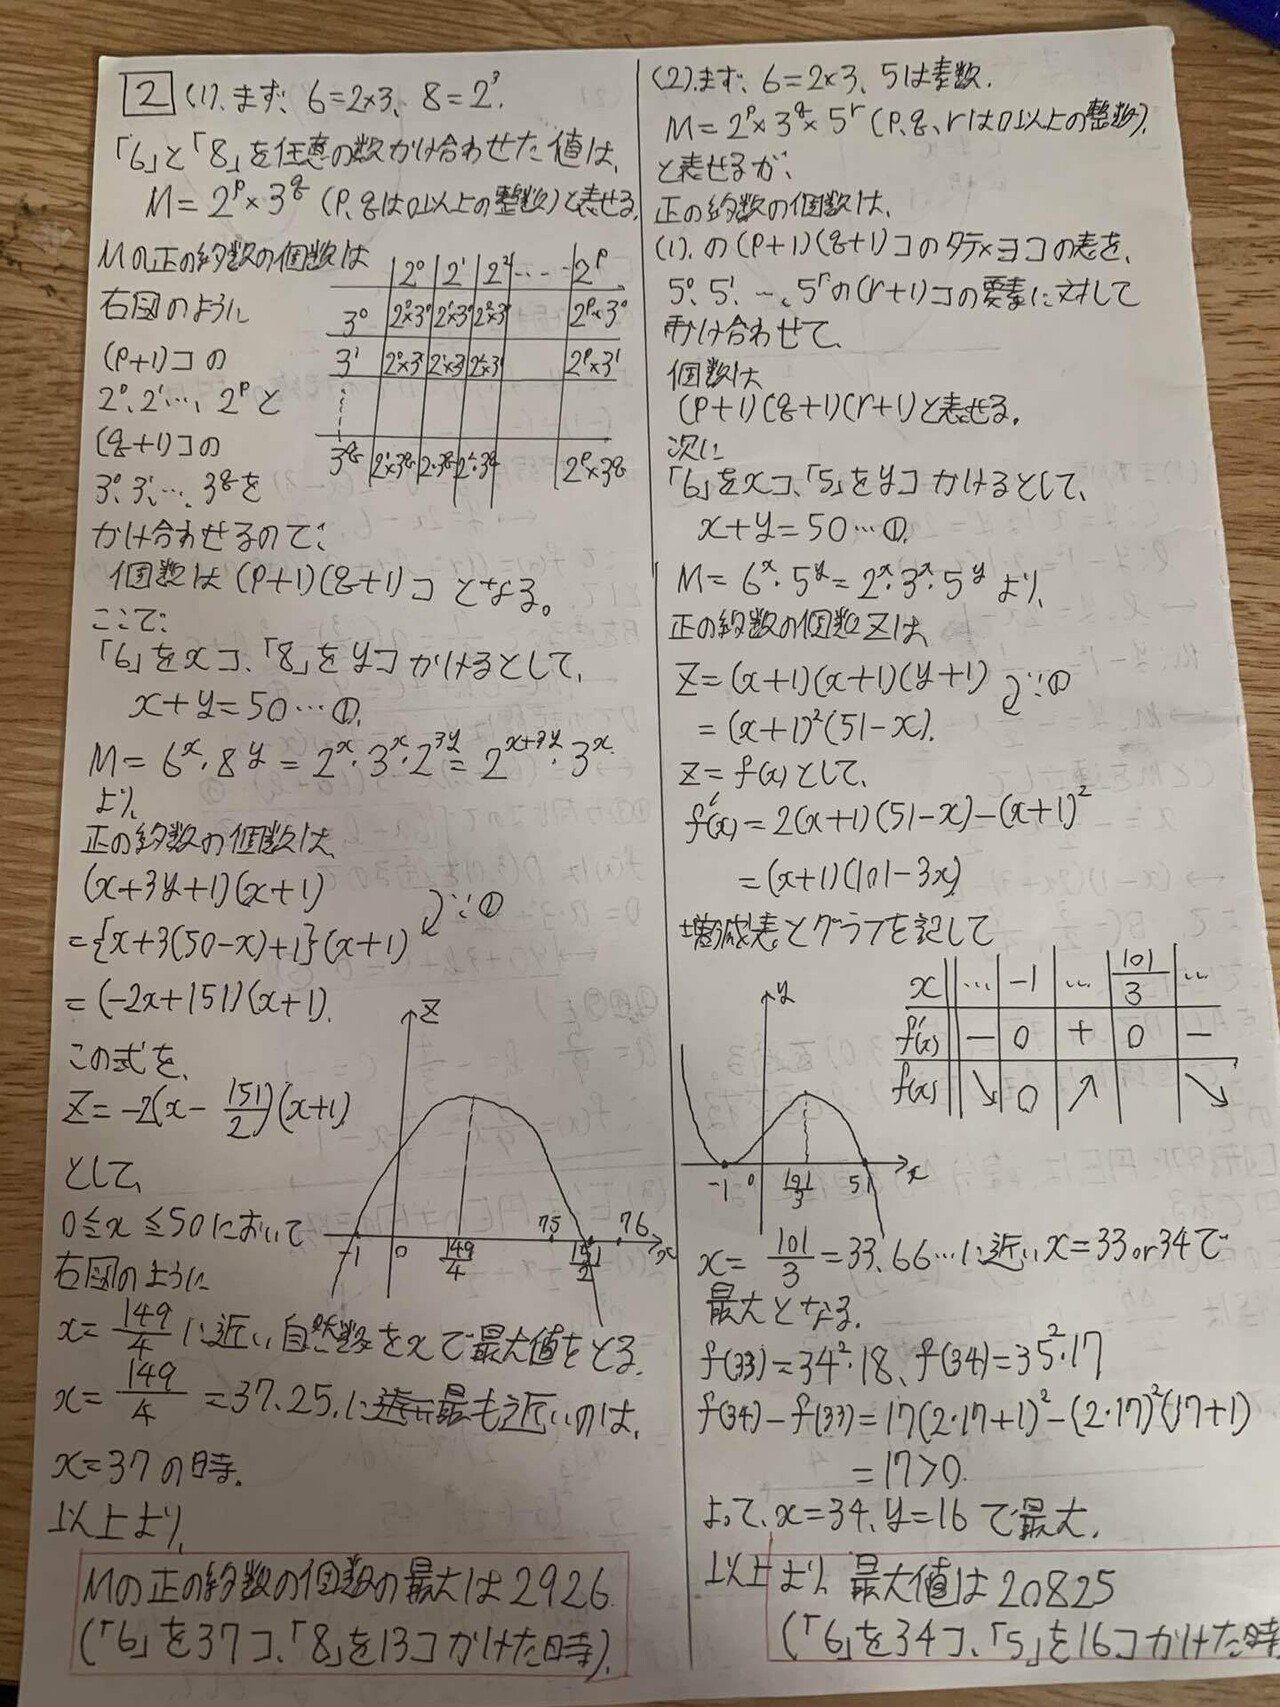 2 (1). まず、6=2×3、8=2³.
「6」と「8」を任意の数かけ合わせた値は、
M=2^p×3^q (P、qは0以上の整数)と表せる。
Mの正の約数の個数は
右図のように
(P+1)コの
2⁰、2¹…、2^pと
(q+1)コの
3⁰、3¹、…、3^qを
かけ合わせるので、
2⁰ 2¹ 2² … 2^p
3⁰ 2⁰×3⁰ 2¹×3⁰ 2²×3⁰ 2^p×3⁰
3¹ 2⁰×3¹ 2¹×3¹ 2²×3¹ 2^p×3¹
3^q 2^p×3^q
個数は(P+1)(q+1)コ となる。
ここで、
「6」をxコ、「8」をyコかけるとして、
x+y=50…①.
M=6^x・8^y=2^x・3^x・2^3y=2^x+3y・3^x.
より、
正の約数の個数は、
(x+3y+1)(x+1)
={x+3(50-x)+1}(x+1) ∵①
=(-2x+151)(x+1).
この式を、
Z=-2(x-151/2)(x+1)
として、
0≦x≦50において
右図のように
z
-1 0 149/4 75 151/2 76 x
x=149/4に近い自然数をxで最大値をとる。
x=149/4=37.25.に最も近いのは、
x=37の時.
以上より、
Mの正の約数の個数の最大は2926
(「6」を37コ、「8」を13コかけた時).
(2).まず、6=2×3、5は素数.
M=2^p×3^q×5^r (P、q、rは0以上の整数).
と表せるが、
正の約数の個数は、
(1).の(P+1)(q+1)コのタテ×ヨコの表を、
5⁰、5¹、…、5^rの(r+1)コの要素に対して
かけ合わせて、
個数は
(P+1)(q+1)(r+1)と表せる.
次に
「6」をxコ、「5」をyコかけるとして、
x+y=50…①.
M=6^x・5^y=2^x・3^x・5^y より、
正の約数の個数Zは、
Z=(x+1)(x+1)(y+1) ∵①
=(x+1)²(51-x).
Z=f(x)として、
f'(x)=2(x+1)(51-x)-(x+1)²
=(x+1)(101-3x)
増減表とグラフを記して
x … -1 … 101/3 …
f'(x) - 0 + 0 -
f(x) ↘ 0 ↗ ↘
y
-1 0 101/3 51 x
x=101/3=33.66…に近いx=33or34で
最大となる.
f(33)=34²・18、f(34)=35²・17
f(34)-f(33)=17(2・17+1)²-(2・17)²(17+1)
=17>0.
よって、x=34、y=16で最大.
以上より、最大値は20825
(「6」を34コ、「5」を16コかけた時